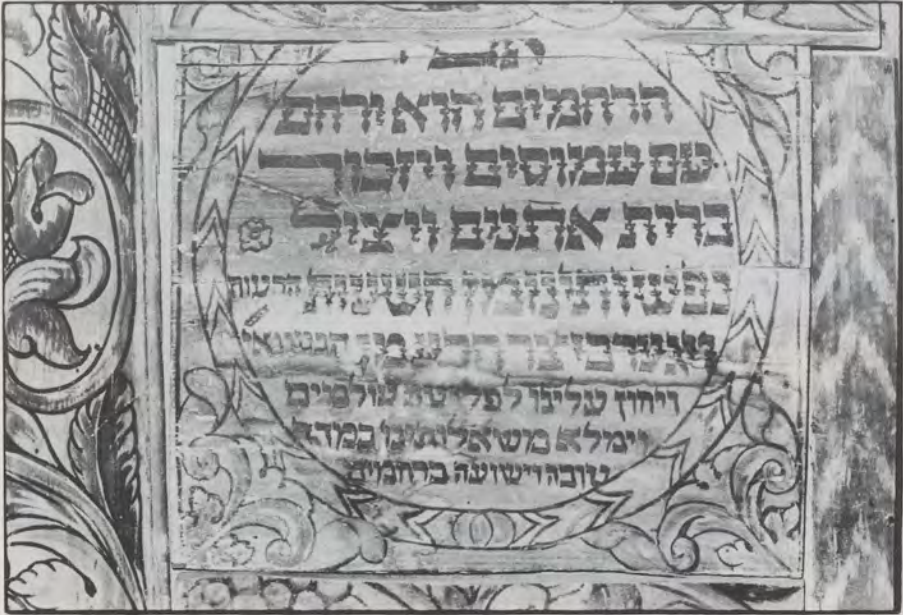 הרחמים הוא ירחם
עם עמוסים ויזכור
ברית אתנים ויציל
נפשותינו מן השעות הרעות
ויגער ביצר הרע מן הנשואים
ויחון עלינו לפליטת עולמים
וימלא משאלותינו במדה
טובה וישועה ברחמים